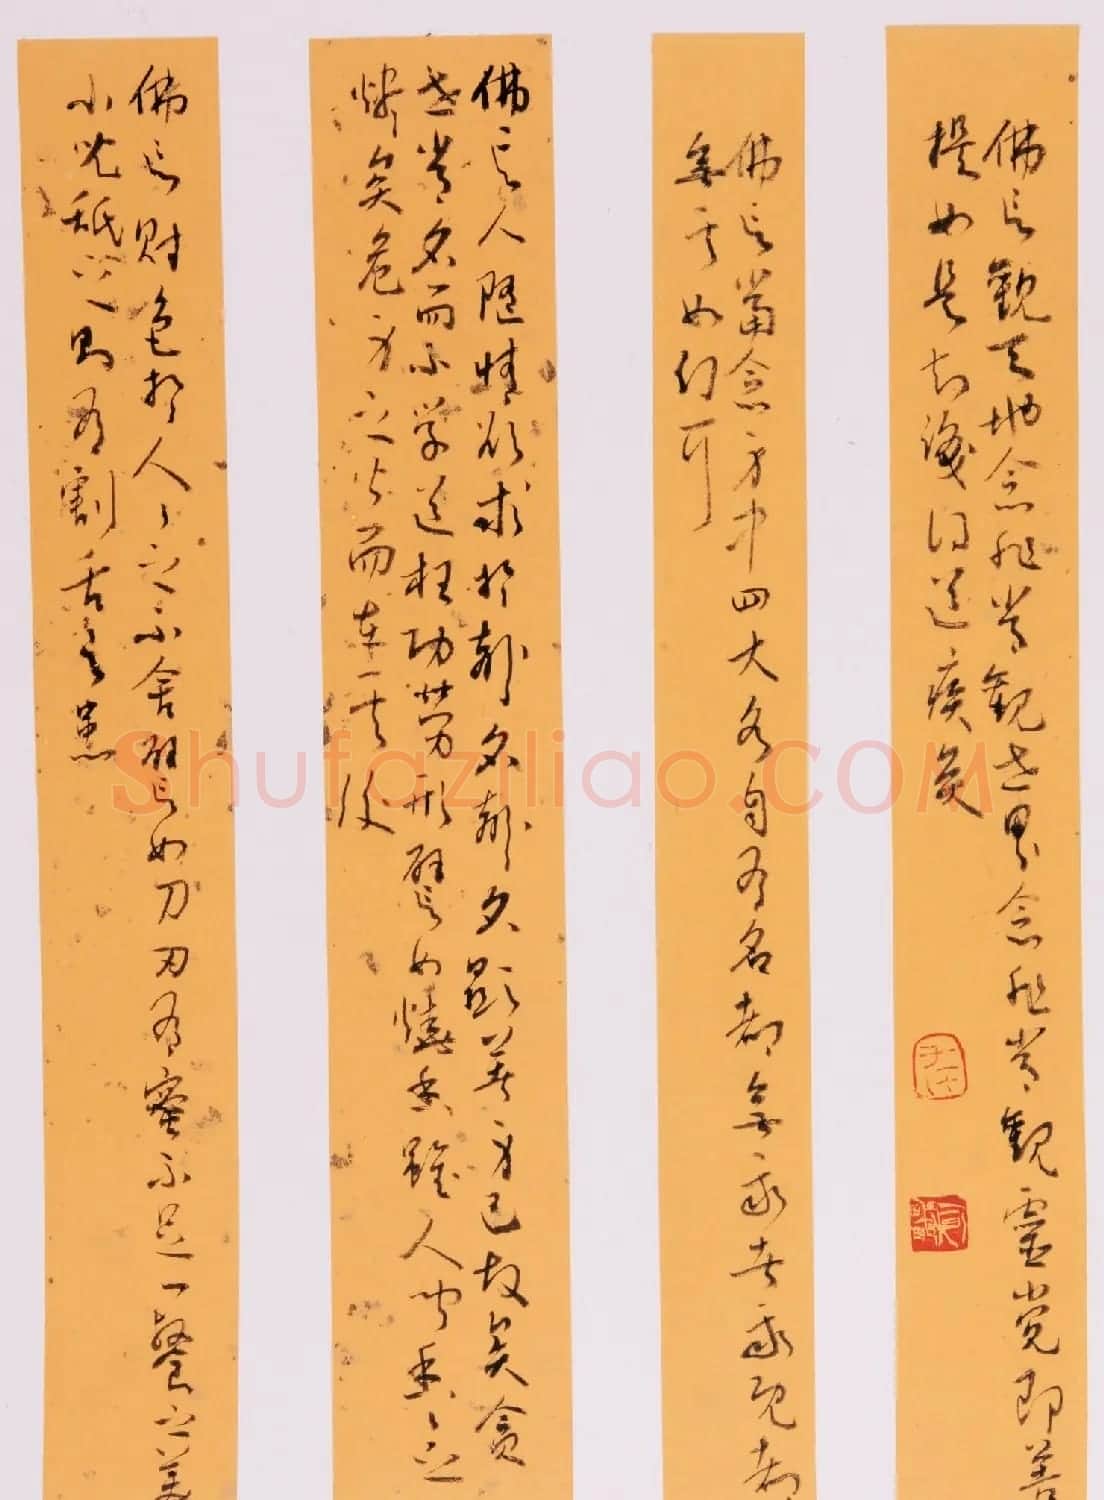 佛言觀天地念非常觀世界念非常觀靈覺即菩
提如是知識得道疾矣
佛言當念身中四大各自有名都無我者我既都
無其如幻耳
佛言人隨情欲求於聲名聲名顯著身已故矣貪
世常名而不學道枉功勞形譬如燒香雖人聞香香之
燼矣危身之火而在其後
佛言財色於人人之不舍譬如刀刃有蜜不足一餐之美
小兒舐之則有割舌之患
Shufaziliao.COM